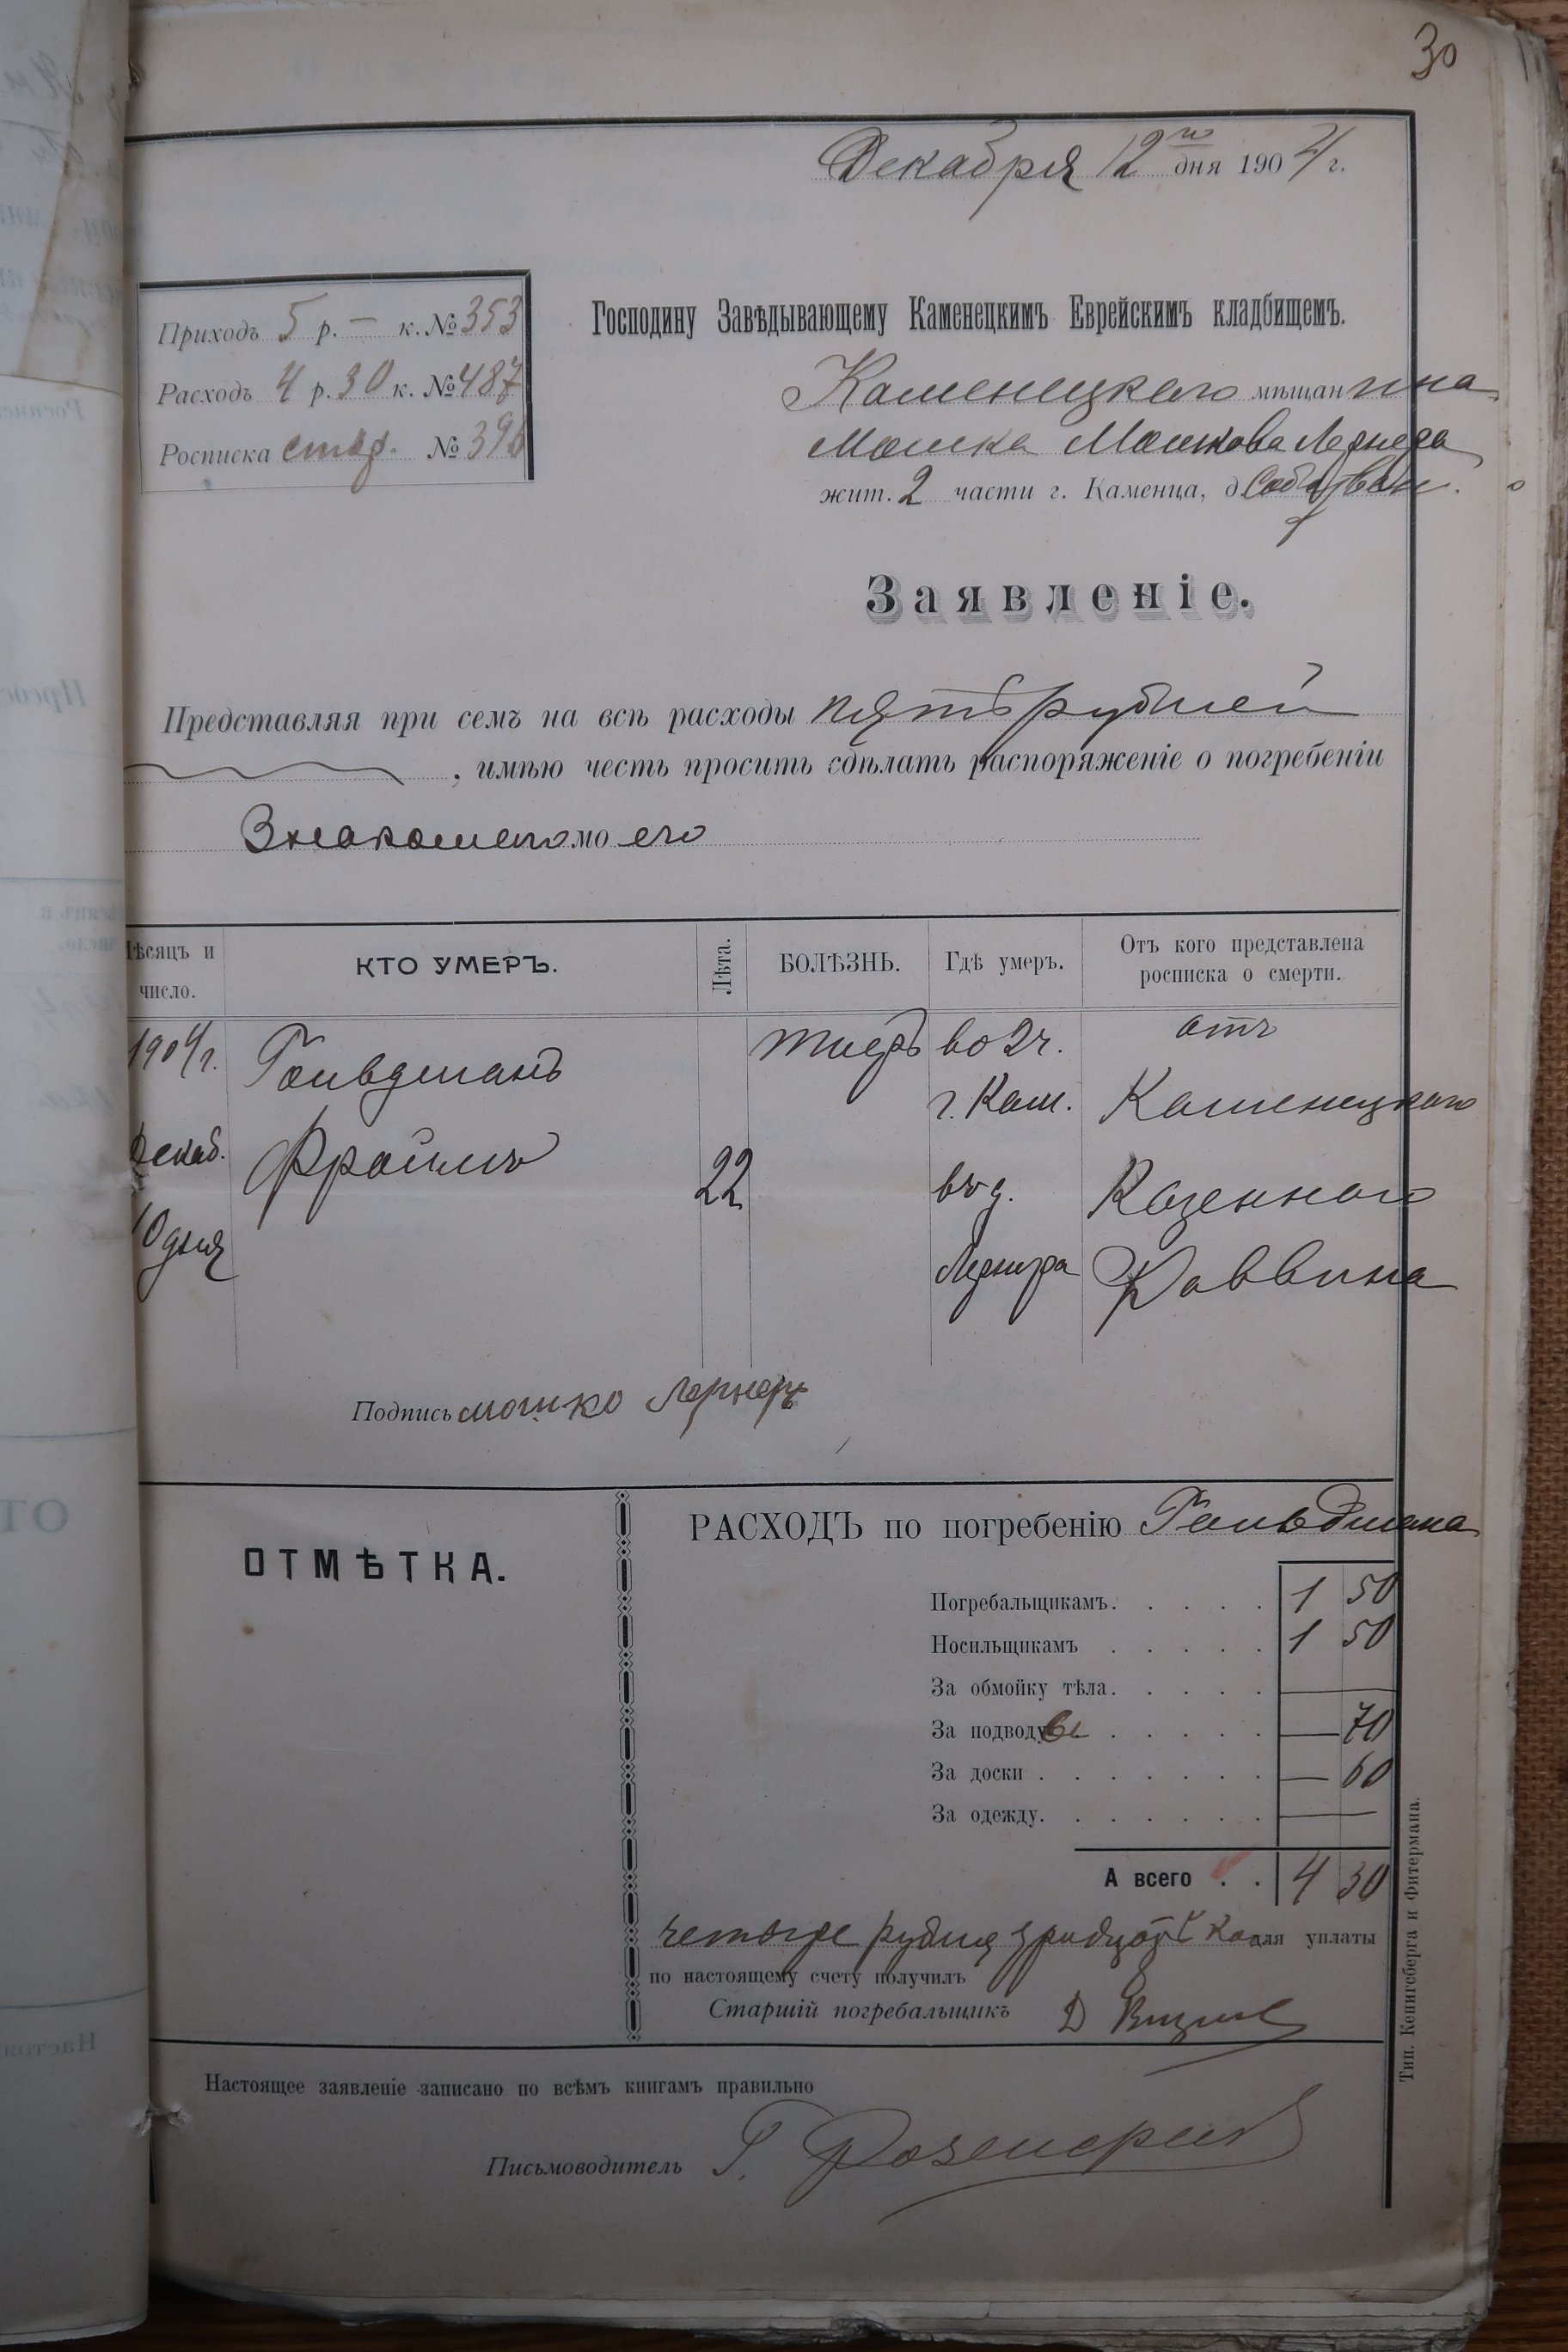 30
Декабря 12го дня 1904 г.
Приходъ 5 р. — к. № 353
Расходъ 4 р. 30 к. № 487
Росписка стар. № 396
Господину Завѣдывающему Каменецкимъ Еврейскимъ кладбищемъ.
Каменецкаго мѣщанина
Мошка Мошкова Лернера
жит. 2 части г. Каменца, д.
Заявленіе.
Представляя при семъ на всѣ расходы пять рублей
, имѣю честь просить сдѣлать распоряженіе о погребеніи
Знакомого мо его
Мѣсяцъ и число.
КТО УМЕРЪ.
Лѣта.
БОЛѢЗНЬ.
Гдѣ умеръ.
Отъ кого представлена росписка о смерти.
1904г. Гольдманъ во 2 ч. отъ
г. Кам. Каменецкаго
Декаб. Фроимъ 22 въ д. Казеннаго
10 дня Лернера Раввина
Подпись мошко Лернеръ
ОТМѢТКА.
РАСХОДЪ по погребенію Гольдмана
Погребальщикамъ. . . . . 1 50
Носильщикамъ . . . . . 1 50
За обмойку тѣла. . . . . —
За подводу . . . . . — 70
За доски . . . . . . . — 60
За одежду. . . . . . . —
А всего . . 4 30
четыре рубля тридцать ко для уплаты
по настоящему счету получилъ
Старшій погребальщикъ Д
Настоящее заявленіе записано по всѣмъ книгамъ правильно
Письмоводитель Г.
Тип. Кенигсберга и Фитермана.